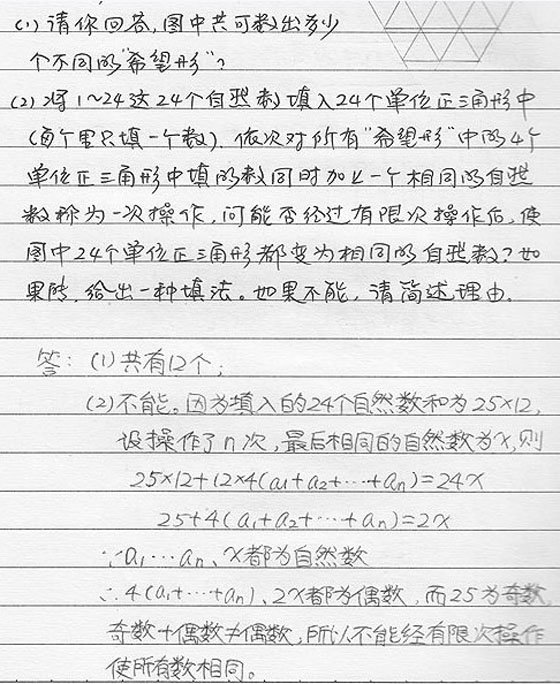 (1)请你回答,图中共可数出多少
个不同的"希望形"?
(2)将1~24这24个自然数填入24个单位正三角形中
(每个里只填一个数),依次对所有"希望形"中的4个
单位正三角形中填的数同时加上一个相同的自然
数称为一次操作,问能否经过有限次操作后,使
图中24个单位正三角形都变为相同的自然数?如
果能,给出一种填法。如果不能,请简述理由.
答:(1)共有12个;
(2)不能。因为填入的24个自然数和为25×12,
设操作了n次,最后相同的自然数为x,则
25×12+12×4(a1+a2+…+an)=24x
25+4(a1+a2+…+an)=2x
∵a1…an、x都为自然数
∴4(a1+…+an)、2x都为偶数,而25为奇数,
奇数+偶数≠偶数,所以不能经有限次操作
使所有数相同。